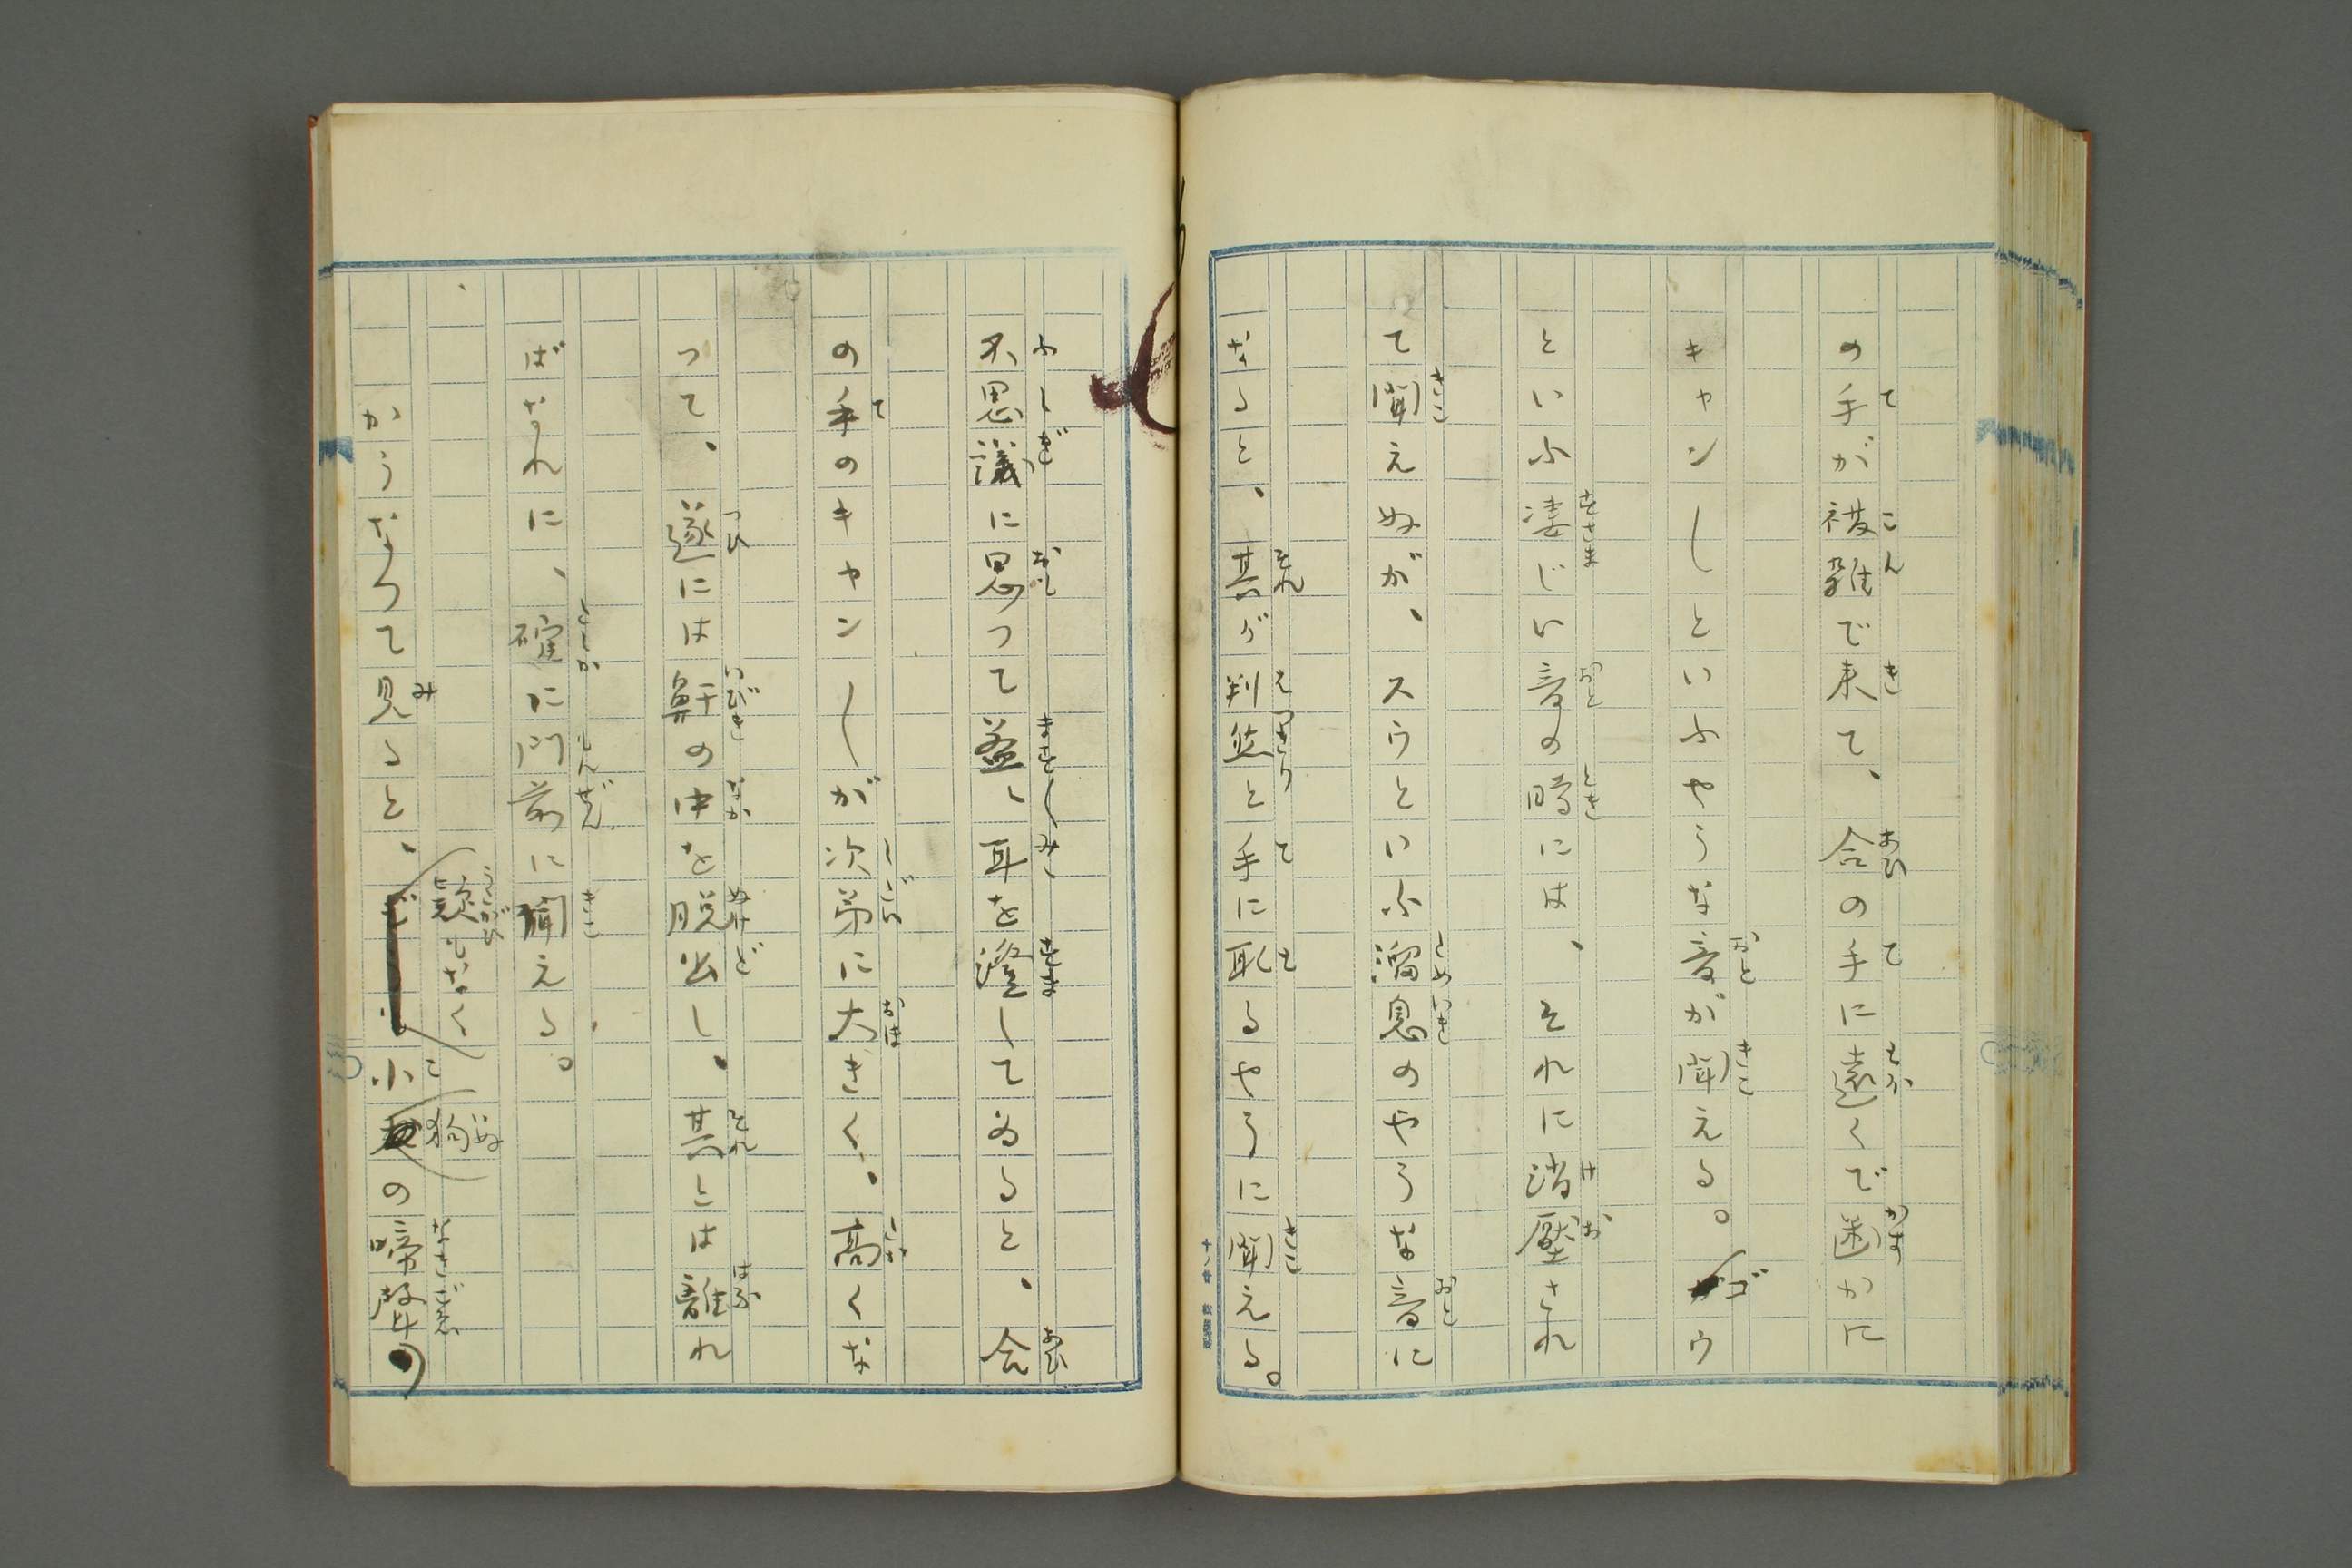 の手が複雑で来て、合の手に遠くで幽かに
キャンしといふやうな音が聞える。ゴウ
といふ凄じい音の時には、それに消壓され
て聞えぬが、スウといふ溜息のやうな音に
なると、其が判然と手に取るやうに聞える。
不思議に思つて益〻耳を澄してゐると、合
の手のキャン〳〵が次第に大きく、高くな
つて、遂には鼾の中を脱出し、其とは離れ
ばなれに、確に門前に聞える。
かうなつて見ると、疑もなく小狗の啼聲の